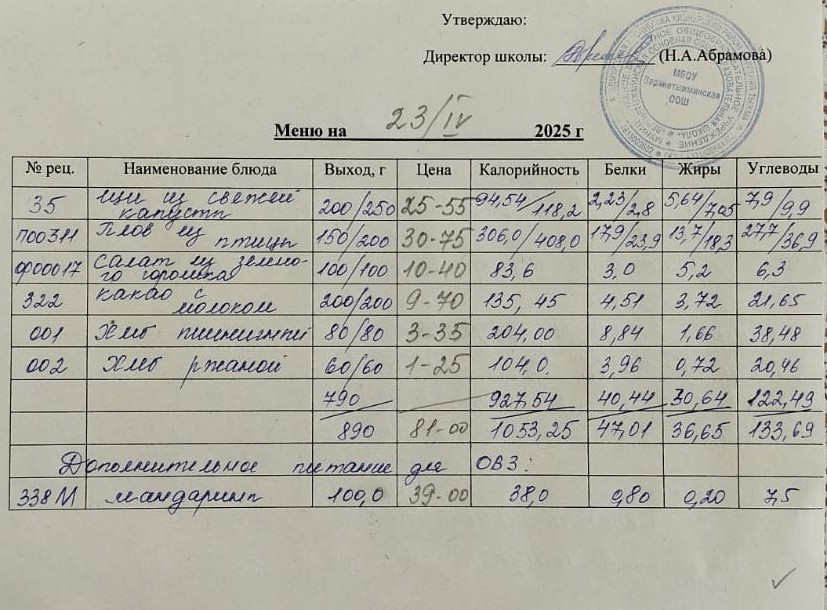 Утверждаю:
Директор школы: (Н.А.Абрамова)
МБОУ
Верхнетыжминская
ООШ
Меню на 23/IV 2025 г
№ рец. Наименование блюда Выход, г Цена Калорийность Белки Жиры Углеводы
35 Щи из свежей капусты 200/250 25-55 94,54/118,2 2,23/2,8 5,64/7,05 7,9/9,9
П00311 Плов из птицы 150/200 30-75 306,0/408,0 17,9/23,9 13,7/18,3 27,7/36,9
Ф00017 Салат из зелено-го горошка 100/100 10-40 83,6 3,0 5,2 6,3
322 какао с молоком 200/200 9-70 135,45 4,51 3,72 21,65
001 Хлеб пшеничный 80/80 3-35 204,00 8,84 1,66 38,48
002 Хлеб ржаной 60/60 1-25 104,0 3,96 0,72 20,46
790 927,54 40,44 30,64 122,49
890 81-00 1053,25 47,01 36,65 133,69
Дополнительное питание для ОВЗ:
338М мандарины 100,0 39-00 38,0 0,80 0,20 7,5